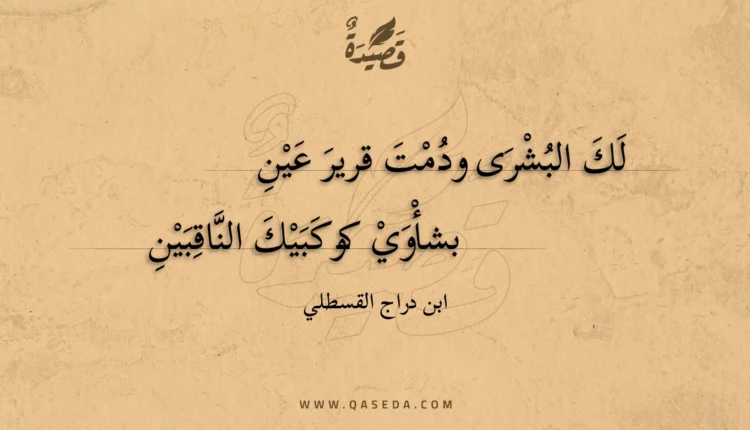 قَصِيْدَةٌ
لَكَ البُشْرَى ودُمْتَ قريرَ عَيْنِ
بشأْوَيْ كوكَبَيْكَ النَّاقِبَيْنِ
ابن دراج القسطلي
WWW.QASEDA.COM